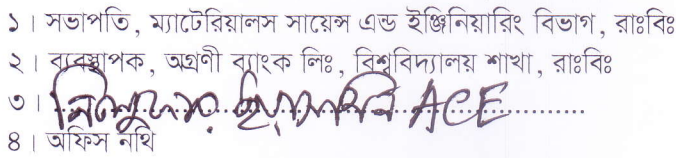 ১। সভাপতি, ম্যাটেরিয়ালস সায়েন্স এন্ড ইঞ্জিনিয়ারিং বিভাগ, রাঃবিঃ
২। ব্যবস্থাপক, অগ্রণী ব্যাংক লিঃ, বিশ্ববিদ্যালয় শাখা, রাঃবিঃ
৩। ACE
৪। অফিস নথি